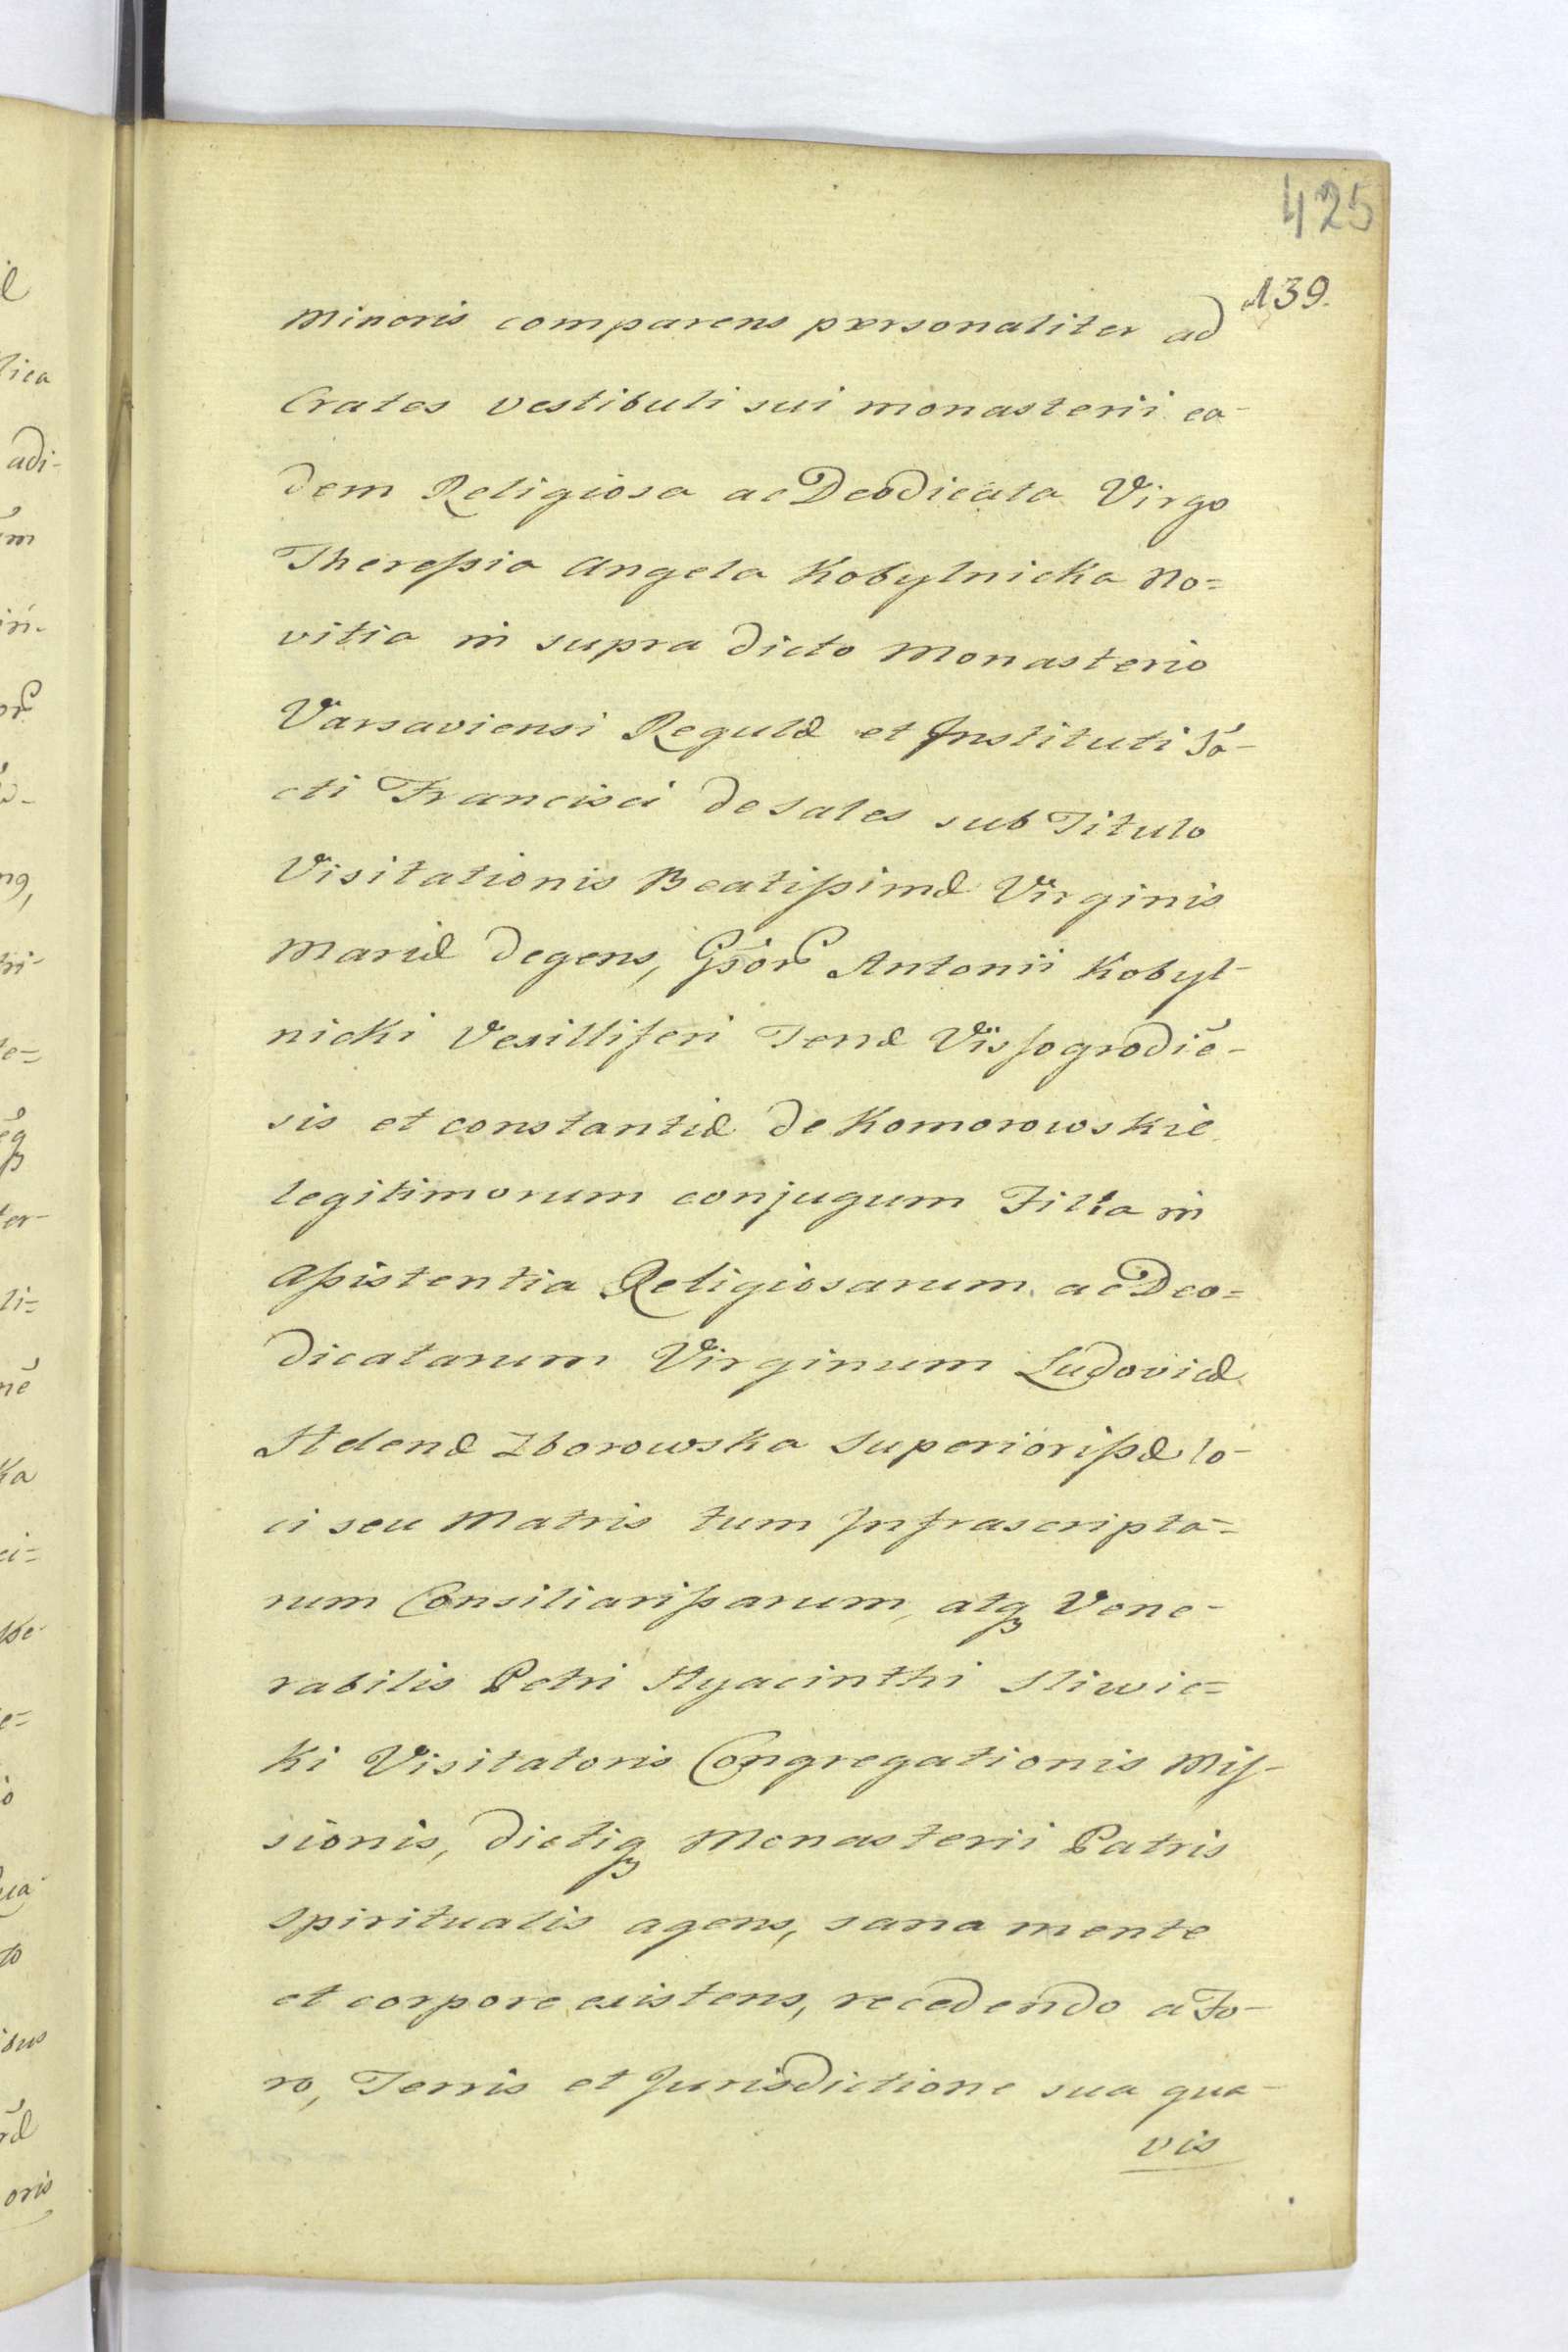 425
139.
Minoris comparens personaliter ad
Crates vestibuli sui monasterii ea-
dem Religiosa ac Deodicata Virgo
Theressia Angela Kobylnicka No=
vitia in supra dicto Monasterio
Varsaviensi Regulæ et Instituti Sã-
cti Francisci de Sales sub Titulo
Visitationis Beatissimæ Virginis
Mariæ degens, Gsor Antonii Kobyl-
nicki Vexilliferi Terræ Vissogrodiē-
sis et Constantiæ de Komorowskie
legitimorum conjugum Filia in
Assistentia Religiosarum ac Deo=
dicatarum Virginum Ludovicæ
Helenæ Zborowska Superiorissæ lo-
ci seu Matris tum Infrascripta=
rum Consiliarissarum, atq3 Vene-
rabilis Petri Hyacinthi Sliwic=
ki Visitatoris Congregationis Mis-
sionis, dictiq3 Monasterii Patris
Spiritualis agens, sana mente
et corpore existens, recedendo a Fo-
ro, Terris et Jurisdictione sua qua-
vis